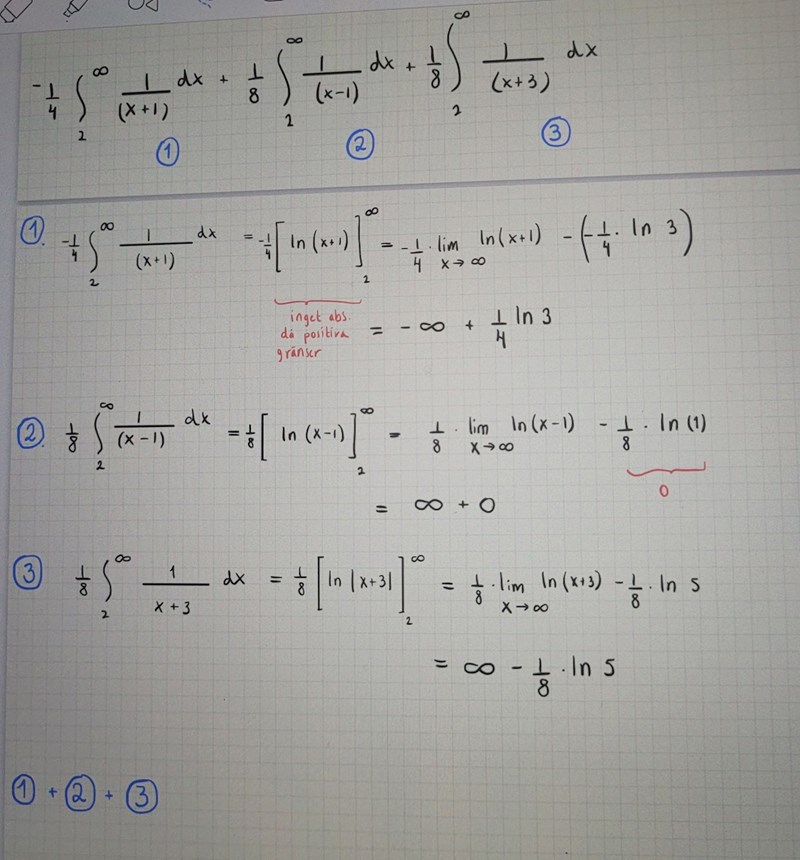 -1/4 ∫₂^∞ 1/(x+1) dx + 1/8 ∫₂^∞ 1/(x-1) dx + 1/8 ∫₂^∞ 1/(x+3) dx
① ② ③
①. -1/4 ∫₂^∞ 1/(x+1) dx = -1/4 [ln(x+1)]₂^∞ = -1/4 · lim x→∞ ln(x+1) - (-1/4 · ln 3)
inget abs.
då positiva
gränser
= -∞ + 1/4 ln 3
②. 1/8 ∫₂^∞ 1/(x-1) dx = 1/8 [ln(x-1)]₂^∞ = 1/8 · lim x→∞ ln(x-1) - 1/8 · ln(1)
0
= ∞ + 0
③ 1/8 ∫₂^∞ 1/x+3 dx = 1/8 [ln|x+3|]₂^∞ = 1/8 · lim x→∞ ln(x+3) - 1/8 · ln 5
= ∞ - 1/8 · ln 5
① + ② + ③